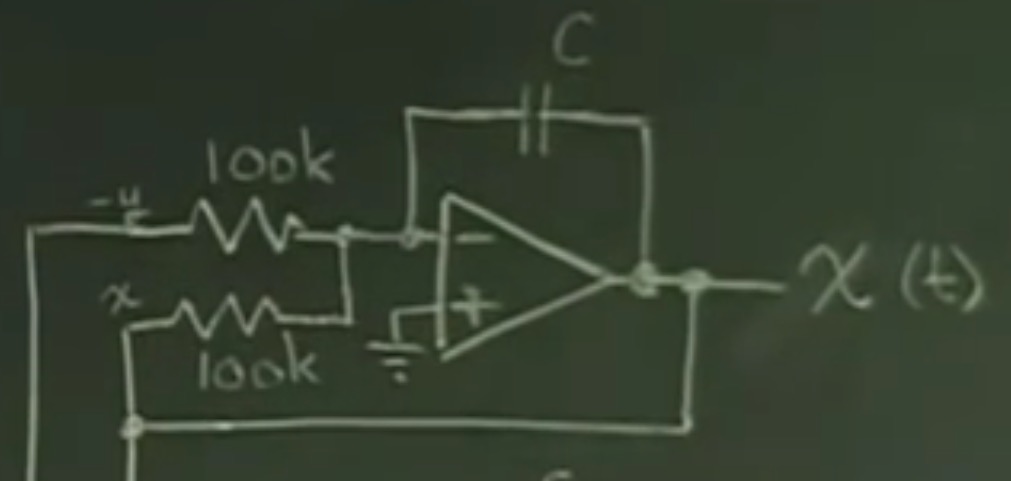 C
100k
-y
x
100k
-
+
x(t)